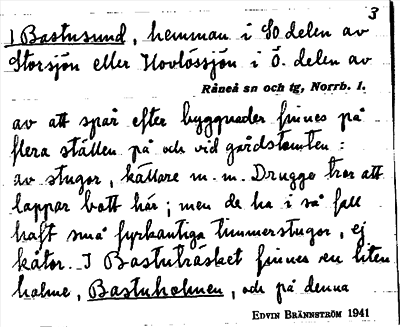 3
1 Bastusund, hemman i SO.delen av
Storsjön eller Hovlössjön i Ö. delen av
Råneå sn och tg, Norrb. l.
av att spår efter byggnader finnes på
flera ställen på och vid gårdstomten:
av stugor, källare m.m. Drugge tror att
lappar bott här; men de ha i så fall
haft små fyrkantiga timmerstugor, ej
kåtor. I Bastuträsket finnes en liten
holme, Bastuholmen, och på denna
EDVIN BRÄNNSTRÖM 1941